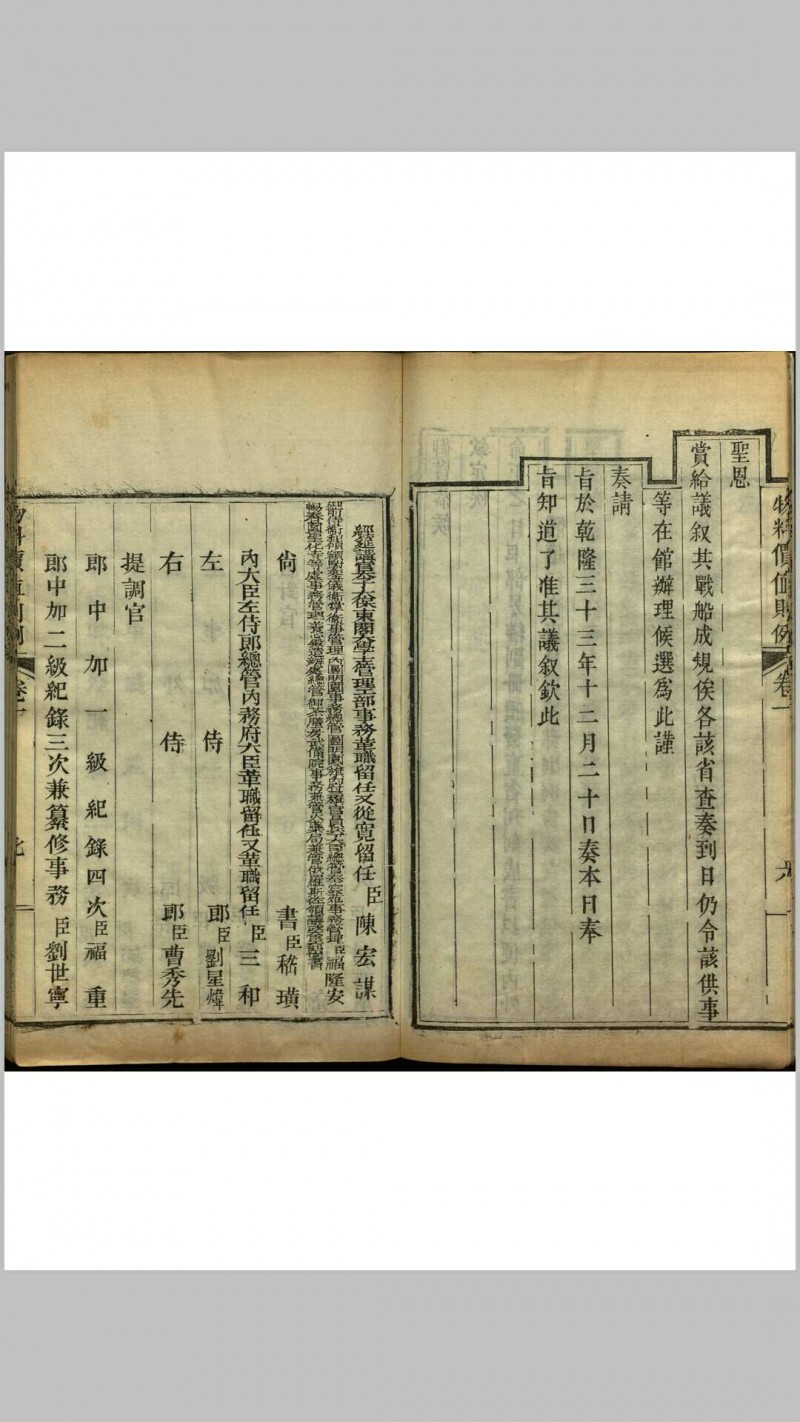 物料價值則例 卷一 六
聖恩
賞給議叙其戰船成規俟各該省查奏到日仍令該供事
等在館辦理候選爲此謹
奏請
旨於乾隆三十三年十二月二十日奏本日奉
旨知道了准其議叙欽此
經筵講官太子太保東閣大學士管理工部事務革職留任又從寬留任臣陳宏謀
福隆安
尚書臣嵇璜
內大臣左侍郎總管內務府大臣革職留任又革職留任臣三和
左侍郎臣劉星煒
右侍郎臣曹秀先
提調官
郎中加一級紀錄四次臣福重
郎中加二級紀錄三次兼纂修事務臣劉世寧
物料價值則例 卷一 七